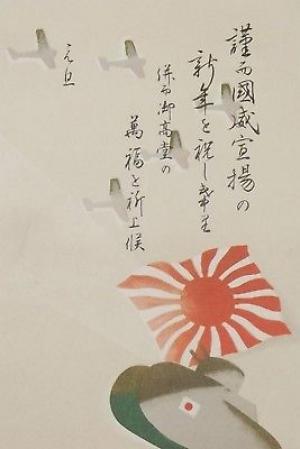 謹而國威宣揚の
新年を祝し奉り
併而御高堂の
萬福を祈上候
元旦